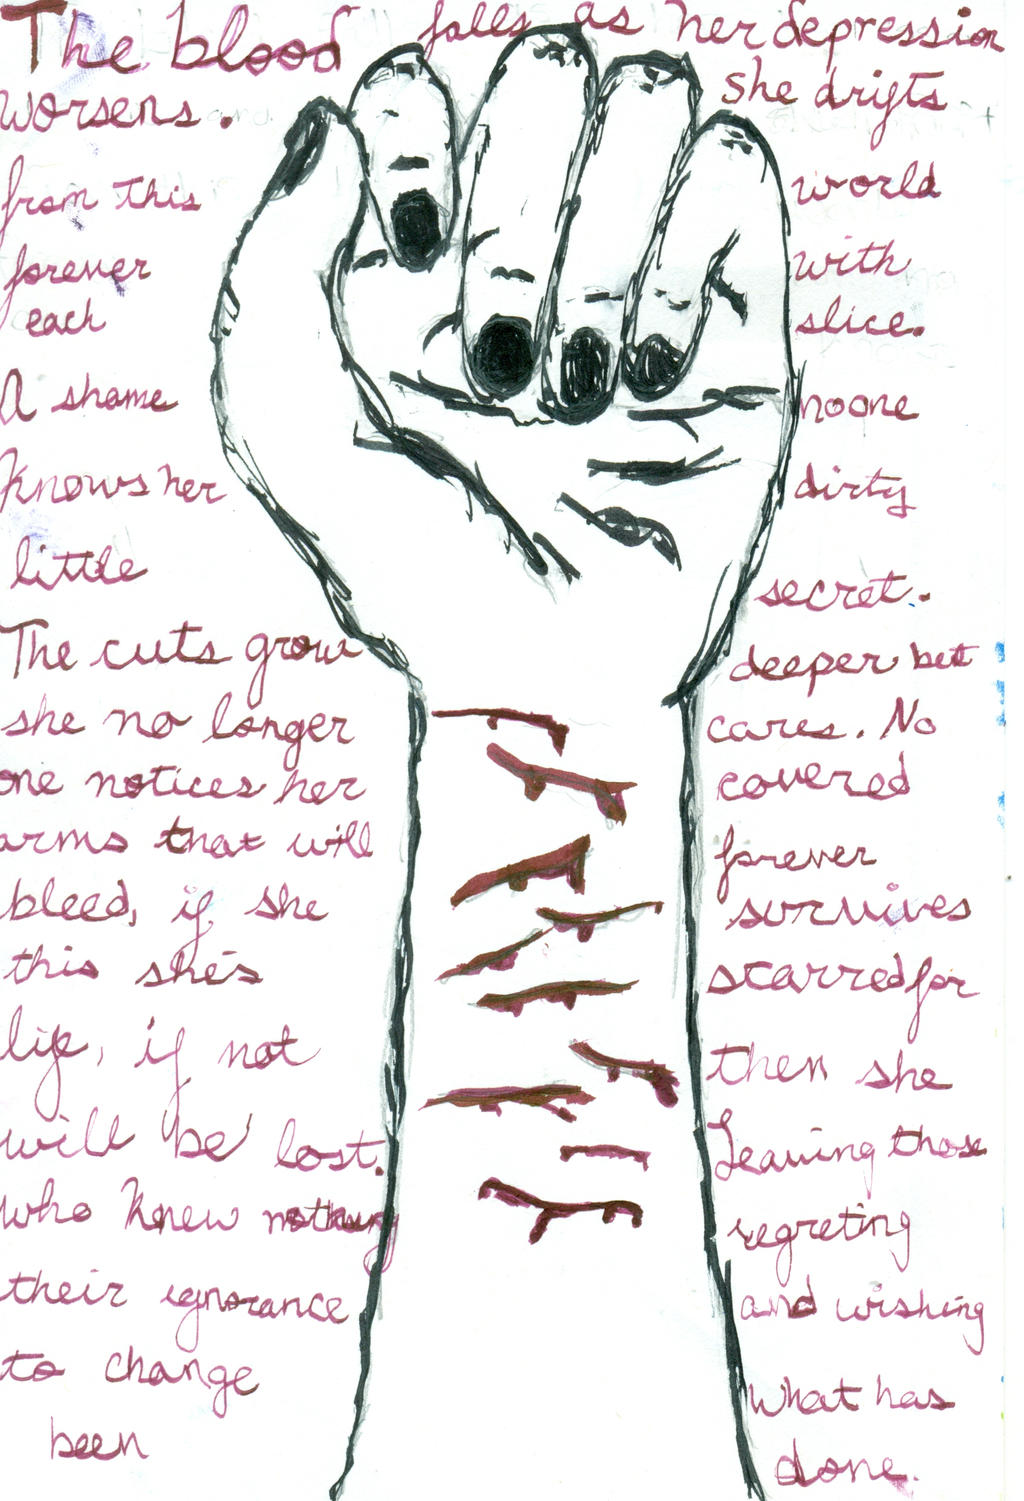 The blood falls as her depression
worsens. she drifts
from this world
forever with
each slice.
A shame noone
knows her dirty
little secret.
The cuts grow deeper but
she no longer cares. No
one notices her covered
arms that will forever
bleed, if she survives
this she's scarred for
life, if not then she
will be lost. Leaving those
who knew nothing regreting
their ignorance and wishing
to change what has
been done.